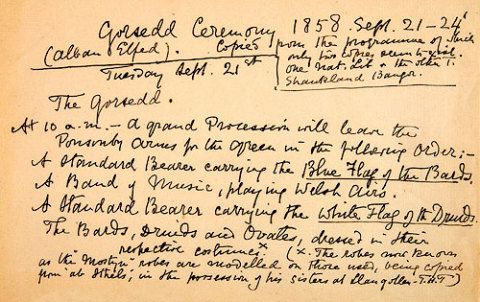 Gorsedd Ceremony 1858 Sept. 21-24th
(Alban Elfed). Copied from the programme of which
only two copies seem to exist.
one Nat. Lib & the other T.
Shankland Bangor.
Tuesday Sept. 21st
The Gorsedd.
At 10 a.m. - A grand Procession will leave the
Ponsonby Arms for the Green in the following order;-
A Standard Bearer carrying the Blue Flag of the Bards.
A Band of Music, playing Welsh Airs.
A Standard Bearer carrying the White Flag of the Druids.
The Bards, Druids and Ovates, dressed in their
respective costumes x (x. The robes now known
as the Mostyn robes are modelled on those used, being copied
from ab Ithel's, in the possession of his sisters at Llangollen - T.H.T)